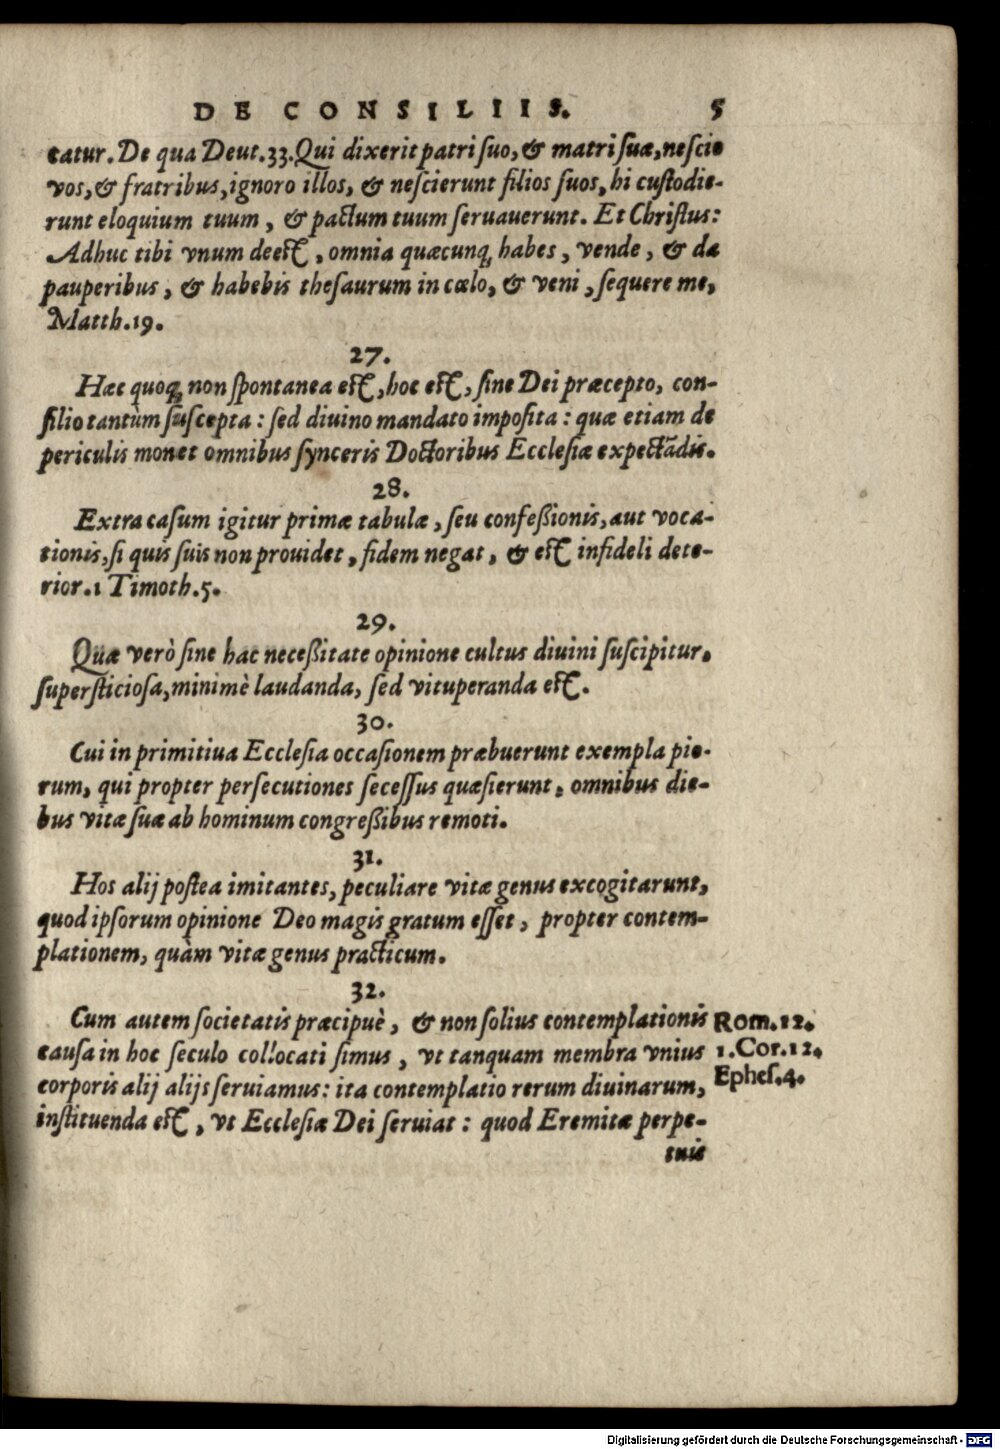 DE CONSILIIS. 5
tatur. De qua Deut.33. Qui dixerit patri suo, & matri suæ, nescio
vos, & fratribus, ignoro illos, & nescierunt filios suos, hi custodie-
runt eloquium tuum, & pactum tuum seruauerunt. Et Christus:
Adhuc tibi vnum deest, omnia quæcunq; habes, vende, & da
pauperibus, & habebis thesaurum in cœlo, & veni, sequere me,
Matth.19.
27.
Hæc quoq; non spontanea est, hoc est, sine Dei præcepto, con-
silio tantùm suscepta: sed diuino mandato imposita: quæ etiam de
periculis monet omnibus synceris Doctoribus Ecclesiæ expectādis.
28.
Extra casum igitur primæ tabulæ, seu confeßionis, aut voca-
tionis, si quis suis non prouidet, fidem negat, & est infideli dete-
rior. 1 Timoth.5.
29.
Quæ verò sine hac neceßitate opinione cultus diuini suscipitur,
supersticiosa, minimè laudanda, sed vituperanda est.
30.
Cui in primitiua Ecclesia occasionem præbuerunt exempla pio-
rum, qui propter persecutiones secessus quæsierunt, omnibus die-
bus vitæ suæ ab hominum congreßibus remoti.
31.
Hos alij postea imitantes, peculiare vitæ genus excogitarunt,
quod ipsorum opinione Deo magis gratum esset, propter contem-
plationem, quàm vitæ genus practicum.
32.
Cum autem societatis præcipuè, & non solius contemplationis
causa in hoc seculo collocati simus, vt tanquam membra vnius
corporis alij alijs seruiamus: ita contemplatio rerum diuinarum,
instituenda est, vt Ecclesiæ Dei seruiat: quod Eremitæ perpe-
tuis
Rom.12.
1.Cor.12.
Ephes.4.
Digitalisierung gefördert durch die Deutsche Forschungsgemeinschaft - DFG